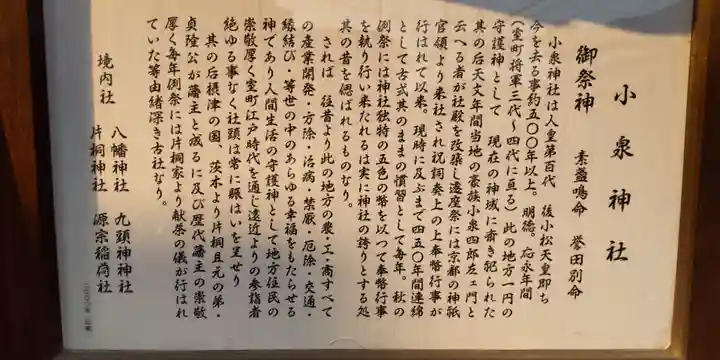 小泉神社
御祭神　素盞鳴命　誉田別命
小泉神社は人皇第百代　後小松天皇即ち
今を去る事約五〇〇年以上。明徳。応永年間
(室町将軍三代〜四代に亘る)此の地方一円の
守護神として　現在の神域に斎き祀られた
其の后天文年間当地の豪族小泉四郎左ェ門と
云へる者が社殿を改築し遷座祭には京都の神祇
官領より来社され祝詞奏上の上奉幣行事が
行はれて以来。現時に及ぶまで四五〇年間連綿
として古式其のままの慣習として毎年。秋の
例祭には神社独特の五色の幣を以つて奉幣行事
を執り行い来たれるは実に神社の誇りとする処
其の昔を偲ばれるものなり。
されば　往昔より此の地方の農・工・商すべて
の産業開発・方除・治病・禁厭・厄除・交通・
縁結び・等世の中のあらゆる幸福をもたらせる
神であり人間生活の守護神として地方住民の
崇敬厚く室町江戸時代を通じ遠近よりの参詣者
絶ゆる事なく社頭は常に賑はいを呈せり
其の后摂津の国、茨木より片桐且元の弟・
貞隆公が藩主と成るに及び歴代藩主の崇敬
厚く毎年例祭には片桐家より献茶の儀が行はれ
ていた等由緒深き古社なり。
境内社　八幡神社　九頭神神社
片桐神社　源宗稲荷社